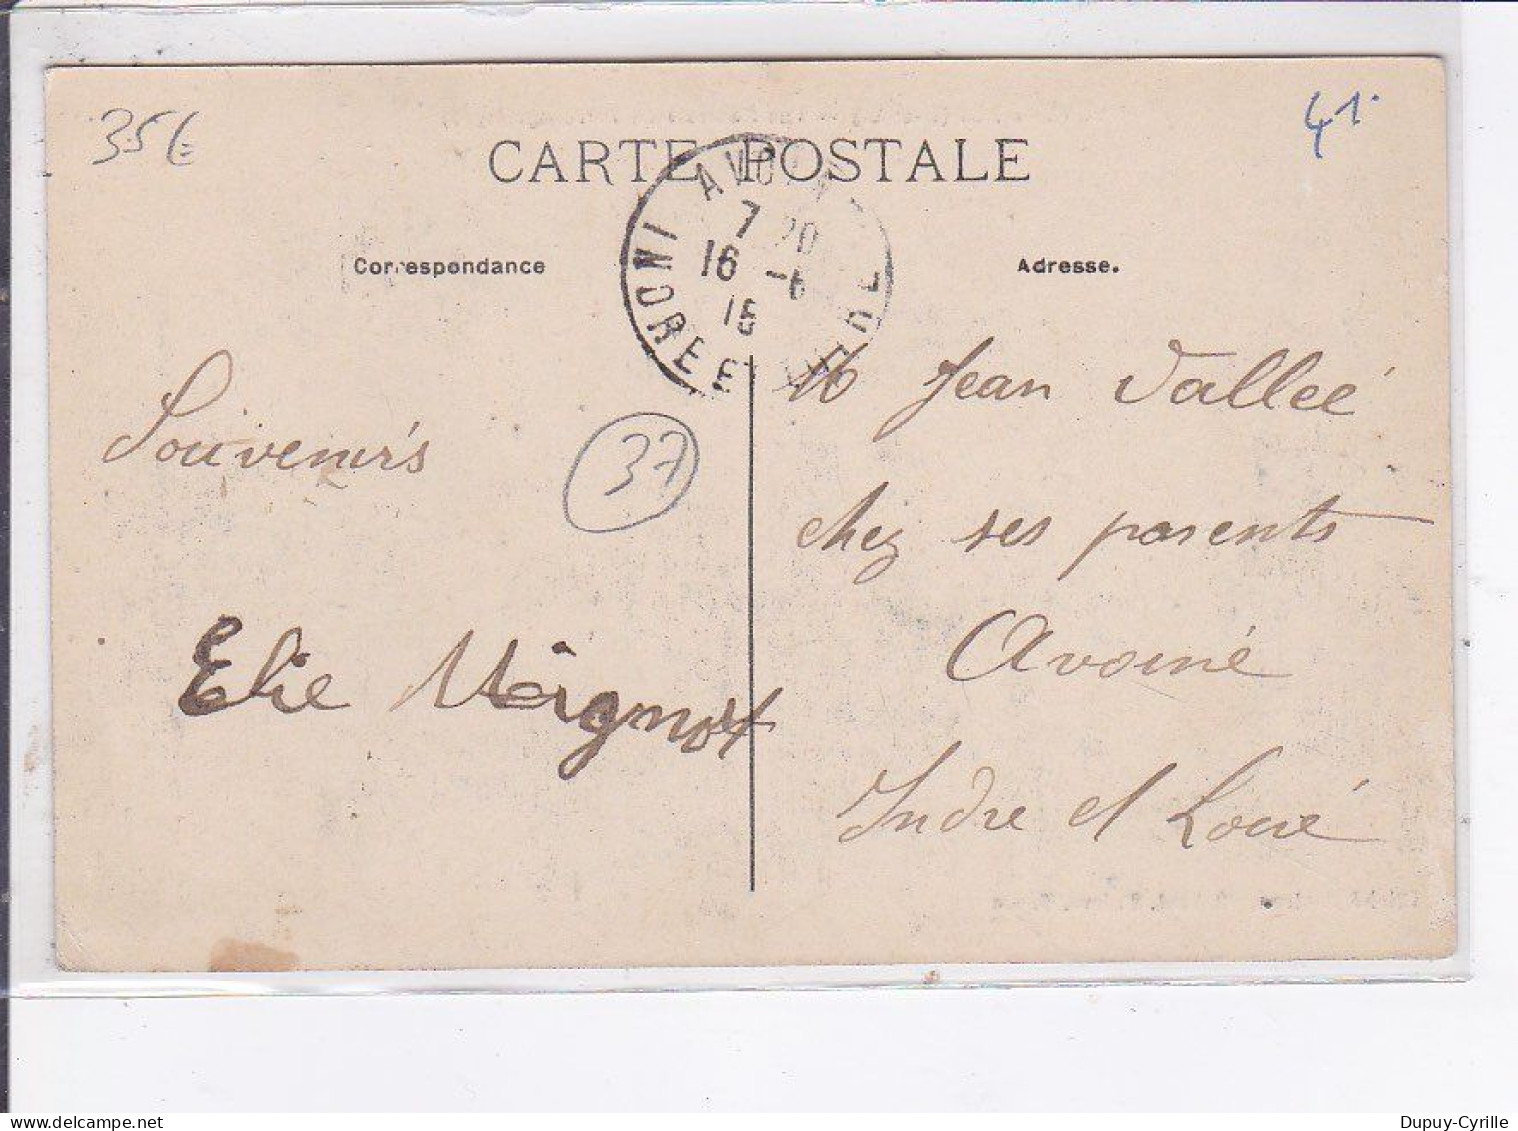 35€
41
CARTE POSTALE
AVOINE
7 20
16 -6
15
INDRE ET LOIRE
Correspondance
Adresse.
Souvenirs
37
Elie Mignot
M Jean Valleé
chez ses parents
Avoiné
Indre et Loiré
Dupuy-Cyrille